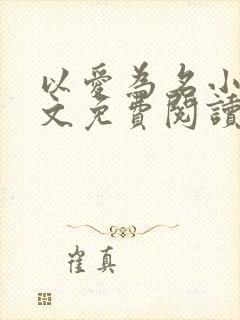 以愛為名小
文免費閱讀
崔真